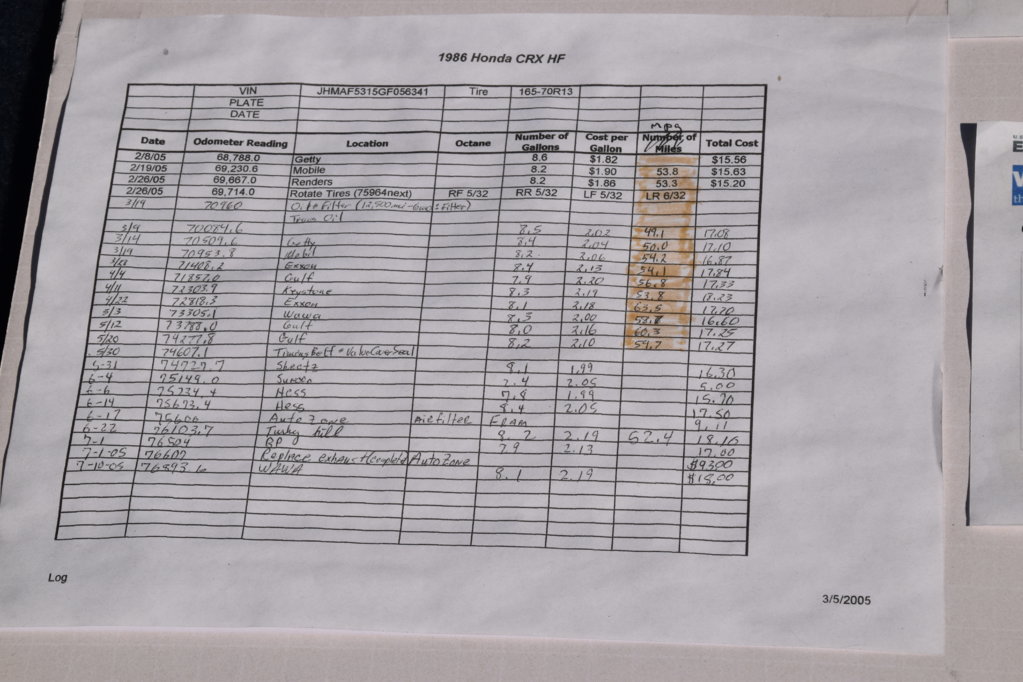 1986 Honda CRX HF
VIN JHMAF5315GF056341 Tire 165-70R13
PLATE
DATE
mpg
Date Odometer Reading Location Octane Number of Gallons Cost per Gallon Number of Miles Total Cost
2/8/05 68,788.0 Getty 8.6 $1.82 $15.56
2/19/05 69,230.6 Mobile 8.2 $1.90 53.8 $15.63
2/26/05 69,667.0 Renders 8.2 $1.86 53.3 $15.20
2/26/05 69,714.0 Rotate Tires (75964next) RF 5/32 RR 5/32 LF 5/32 LR 6/32
3/19 70960 Filter)
Trans Oil
3/9 70084.6 8.5 2.02 49.1 17.08
3/14 70509.6 Getty 8.4 2.04 50.0 17.10
3/19 70953.8 Mobil 8.2 2.06 54.2 16.87
71408.2 Exxon 8.4 2.13 54.1 17.84
4/4 71857.0 Gulf 7.9 2.20 56.8 17.33
4/11 72303.9 Keystone 8.3 2.19 53.8 18.23
4/22 72818.3 Exxon 8.1 2.18 63.5 17.70
5/3 73305.1 Wawa 8.3 2.00 16.60
5/12 73788.0 Gulf 8.0 2.16 60.3 17.25
5/20 74277.8 Gulf 8.2 2.10 59.7 17.27
5/30 74607.1 Timing Belt + Valve Cover Seal
5-31 Sheetz 8.1 1.99 16.30
6-4 75149.0 Sunoco 2.4 2.05 5.00
6-6 75234.4 Hess 7.8 1.99 15.70
6-14 75673.4 Hess 8.4 2.05 17.50
6-17 Auto Zone air filter FRAM 9.11
6-22 76103.7 Turkey hill 8.2 2.19 52.4 18.10
7-1 76504 BP 7.9 2.13 17.00
7-1-05 76607 Replace exhaust (complete) AutoZone $93.00
7-10-05 76893 WAWA 8.1 2.19 $18.00
Log
3/5/2005